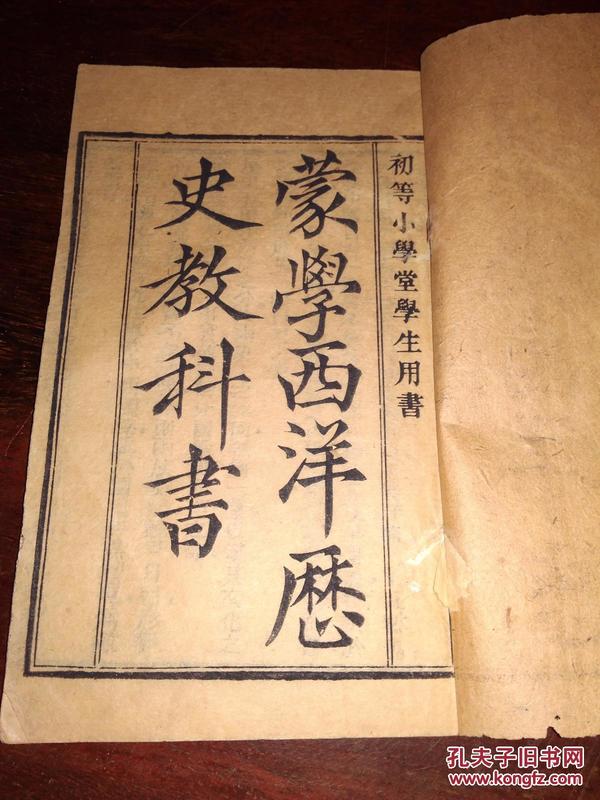 初等小學堂學生用書
蒙學西洋歷
史教科書
孔夫子旧书网
www.kongfz.com